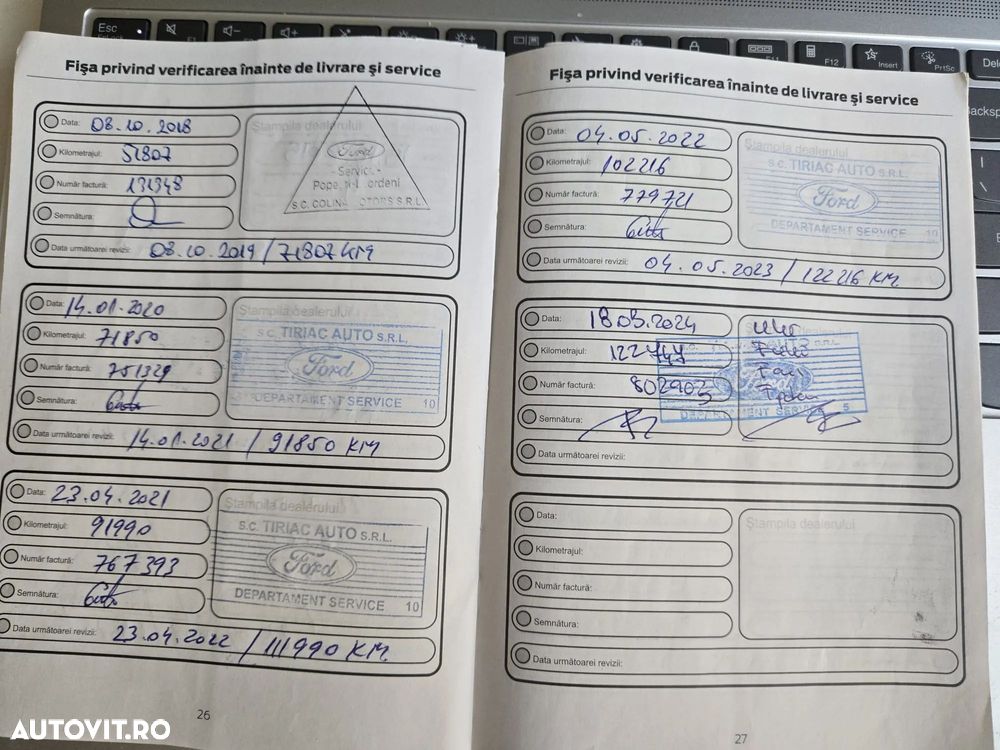 Esc
F12
Insert
PrtSc
Fişa privind verificarea înainte de livrare şi service
Data: 08.10.2018
Kilometrajul: 51807
Număr factură: 131348
Semnătura:
Ştampila dealerului
Ford
Service
S.C. COLINA MOTORS S.R.L.
Data următoarei revizii: 08.10.2019 / 71807 KM
Data: 14.01.2020
Kilometrajul: 71850
Număr factură: 751329
Semnătura:
Ştampila dealerului
S.C. TIRIAC AUTO S.R.L.
Ford
DEPARTAMENT SERVICE 10
Data următoarei revizii: 14.01.2021 / 91850 KM
Data: 23.04.2021
Kilometrajul: 91990
Număr factură: 767393
Semnătura:
Ştampila dealerului
S.C. TIRIAC AUTO S.R.L.
Ford
DEPARTAMENT SERVICE 10
Data următoarei revizii: 23.04.2022 / 111990 KM
26
Fişa privind verificarea înainte de livrare şi service
Data: 04.05.2022
Kilometrajul: 102216
Număr factură: 779721
Semnătura:
Ştampila dealerului
S.C. TIRIAC AUTO S.R.L.
Ford
DEPARTAMENT SERVICE 10
Data următoarei revizii: 04.05.2023 / 122216 KM
Data: 18.03.2024
Kilometrajul: 122747
Număr factură: 802903
Semnătura:
DEPARTAMENT SERVICE 5
Data următoarei revizii:
Data:
Kilometrajul:
Număr factură:
Semnătura:
Ştampila dealerului
Data următoarei revizii:
27
AUTOVIT.RO